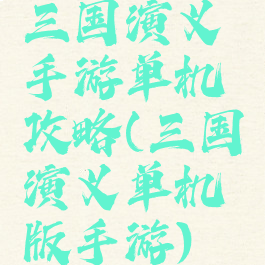 三国演义
手游单机
攻略(三国
演义单机
版手游)